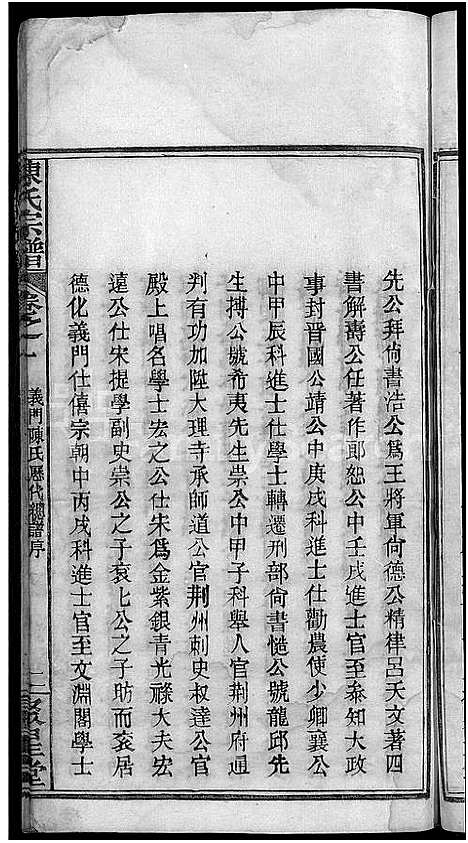 先公拜尙書浩公爲王將軍尙德公精律呂天文著四
書解壽公任著作郎恕公中壬戌進士官至泰知大政
事封晉國公靖公中庚戌科進士仕勸農使少卿襄公
中甲辰科進士仕學士轉遷刑部尙書慥公號龍邱先
生摶公號希夷先生崇公中甲子科舉人官荆州府通
判有功加陞大理寺承師道公官荆州刺史叔達公官
殿上唱名學士宏之公仕宋爲金紫銀青光祿大夫宏
遠公仕宋提學副史崇公之子衮七公之子昉而衮居
德化義門仕僖宗朝中丙戌科進士官至文淵閣學士
陳氏宗譜
卷之一
義門陳氏歷代總譜序
聚星堂